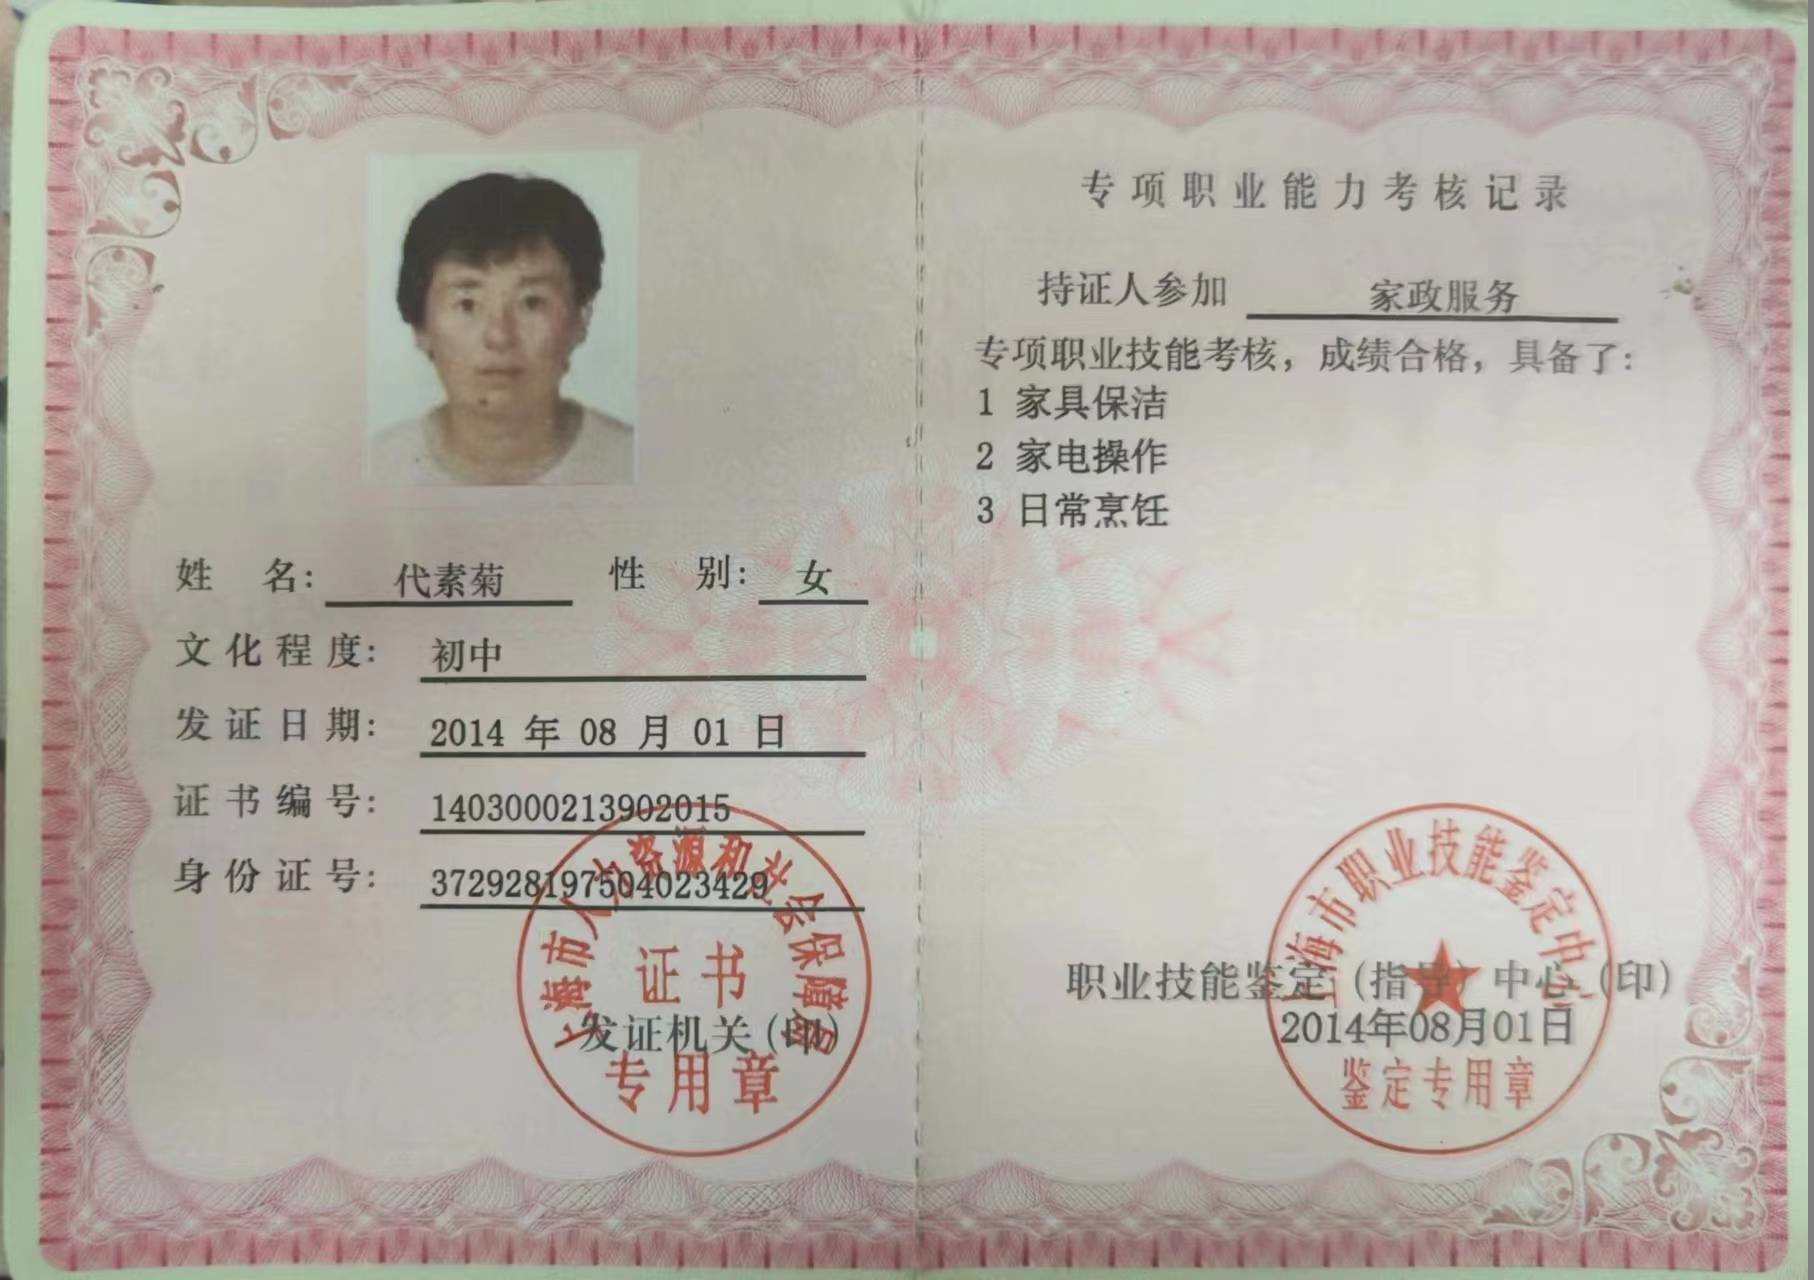 姓 名： 代素菊 性 别： 女
文化程度： 初中
发证日期： 2014 年 08 月 01 日
证书编号： 1403000213902015
身份证号： 372928197504023429
上海市人力资源和社会保障局
证书
发证机关（印）
专用章
专项职业能力考核记录
持证人参加 家政服务
专项职业技能考核，成绩合格，具备了：
1 家具保洁
2 家电操作
3 日常烹饪
上海市职业技能鉴定中心
职业技能鉴定（指导）中心（印）
2014年08月01日
鉴定专用章